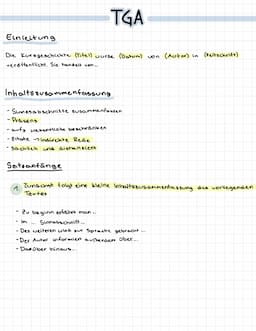 TGA
Einleitung
Die Kurzgeschichte (Titel) wurde (Datum) von (Autor) in (Zeitschrift)
veröffentlicht. Sie handelt von...
Inhaltszusammenfassung
- Sinnesabschnitte zusammenfassen
- Präsens
- aufs wesentliche beschränken
- Zitate → indirekte Rede
- sachlich und distanziert
Satzanfänge
1. Zunächst folgt eine kleine Inhaltszusammenfassung des vorliegenden
Textes
- Zu beginn erfährt man...
- Im ... Sinnabschnitt...
- Des weiteren wird zur Sprache gebracht...
- Der Autor informiert außerdem über...
- Darüber hinaus...